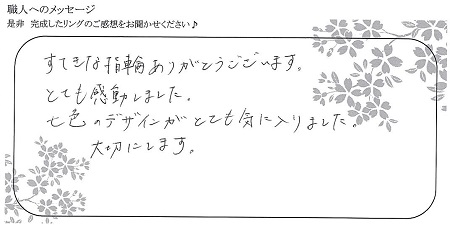 職人へのメッセージ
是非 完成したリングのご感想をお聞かせください♪
すてきな指輪ありがとうございます。
とても感動しました。
七色のデザインがとても気に入りました。
大切にします。